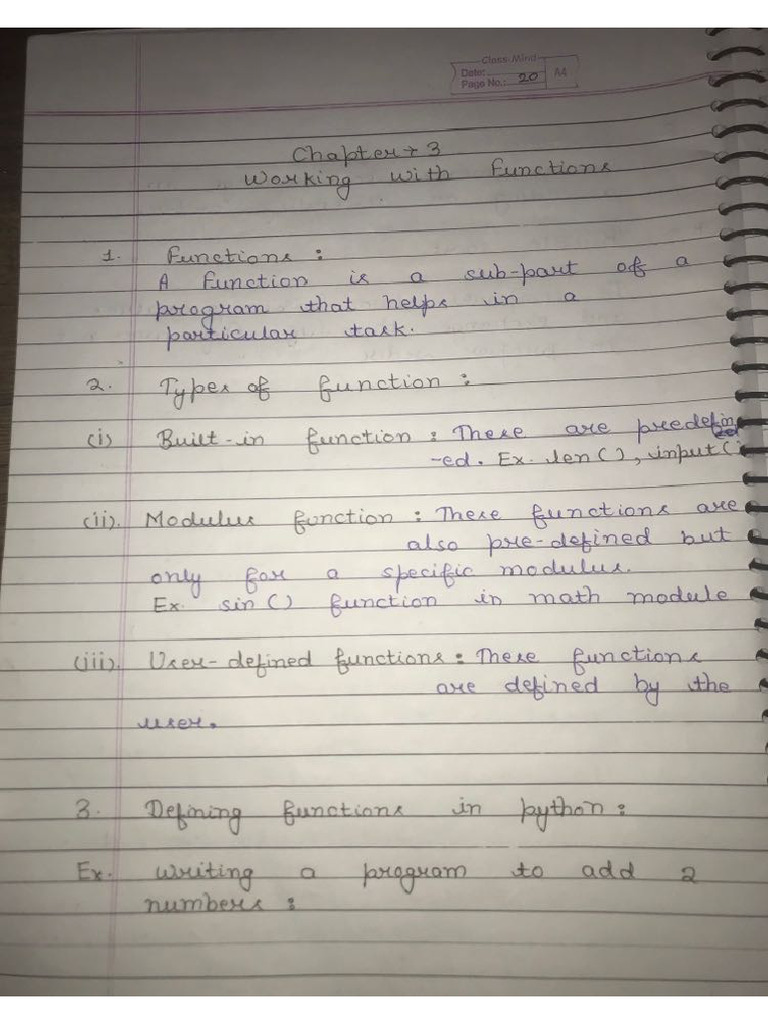 Class Mind
Date:
Page No.: 20
A4
Chapter → 3
Working with functions
1. Functions :
A function is a sub-part of a
program that helps in a
particular task.
2. Types of function :—
(i) Built-in function : These are predefin
-ed. Ex. len(), input(
(ii). Modulus function : These functions are
also pre-defined but
only for a specific modulus.
Ex. sin() function in math module
(iii). User-defined functions : These functions
are defined by the
user.
3. Defining functions in python :
Ex. writing a program to add 2
numbers :